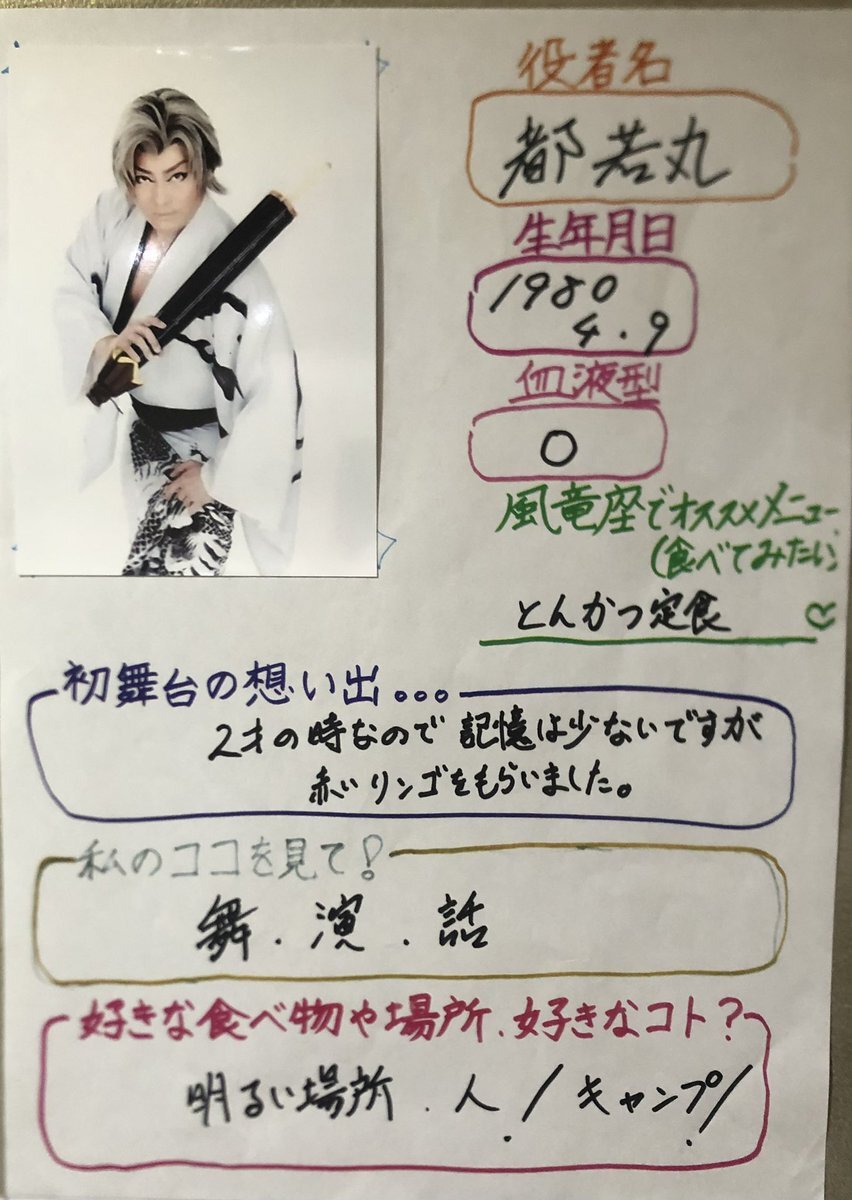 役者名
都 若丸
生年月日
1980
4.9
血液型
O
風竜座でオススメメニュー
(食べてみたい)
とんかつ定食
初舞台の想い出...
2才の時なので 記憶は少ないですが
赤いリンゴをもらいました。
私のココを見て!
舞.演.話
好きな食べ物や場所、好きなコト?
明るい場所.人!キャンプ!